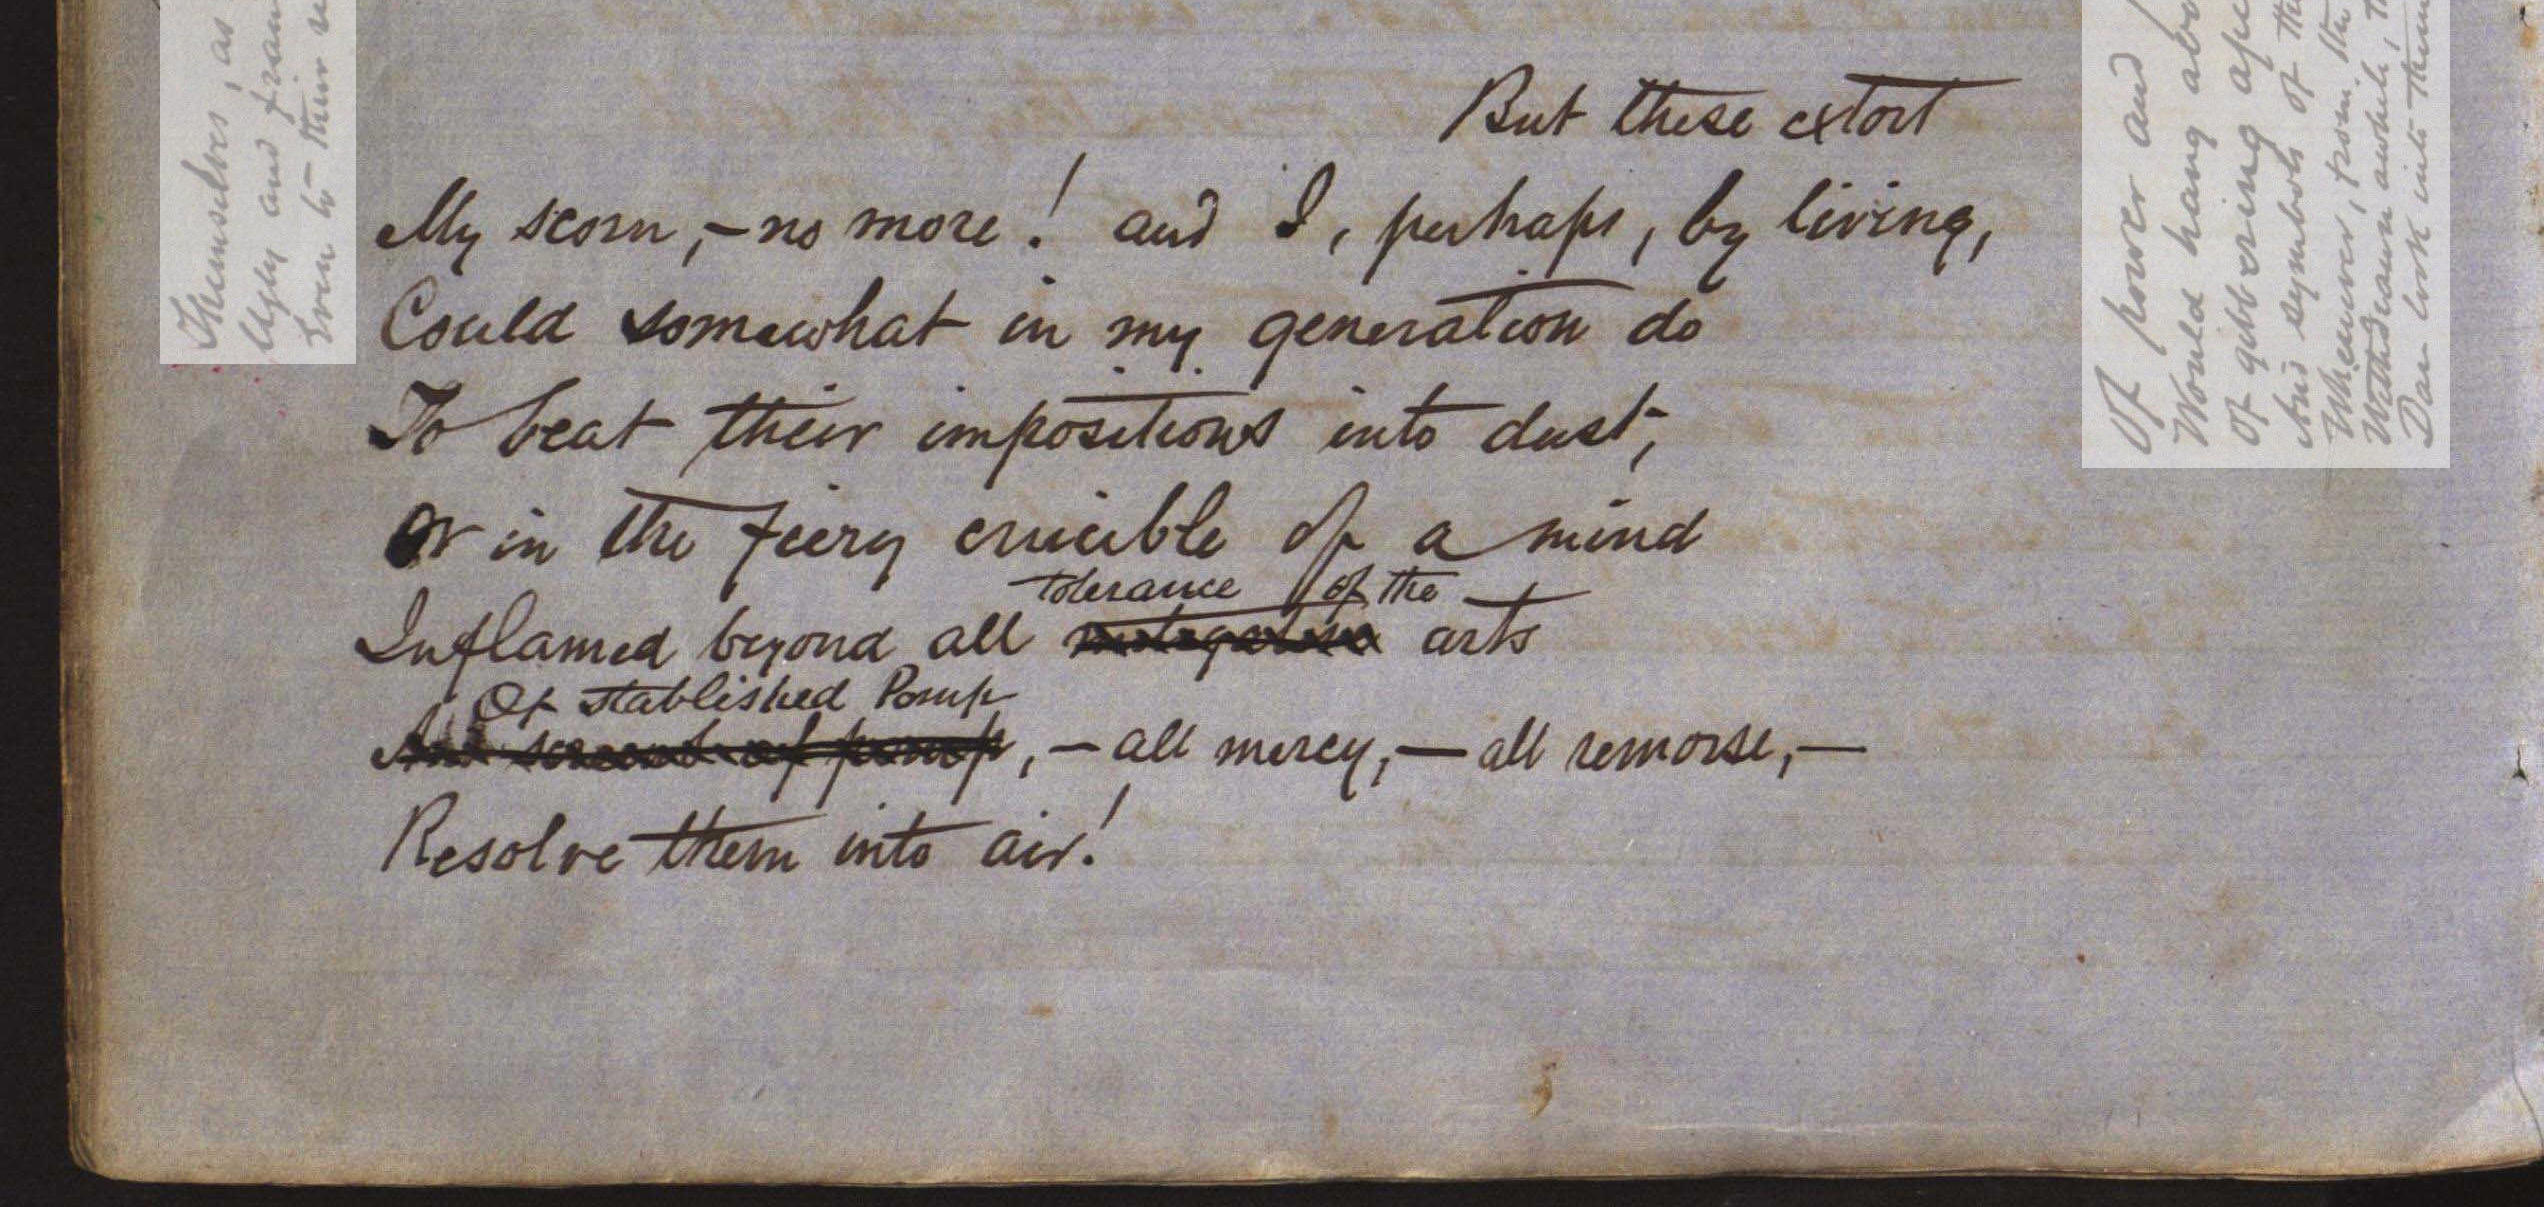 But these extort
My scorn,—no more! and I, perhaps, by living,
Could somewhat in my generation do
To beat their impositions into dust;
Or in the fiery crucible of a mind
tolerance of the
Inflamed beyond all arts
Of stablished Pomp
, — all mercy, — all remorse, —
Resolve them into air!
Themselves, as
Ugly and
Even to their
Of power and
Would hang
Of gibbering
And symbols of
Whenever, from the
Withdrawn awhile,
Dan look into them